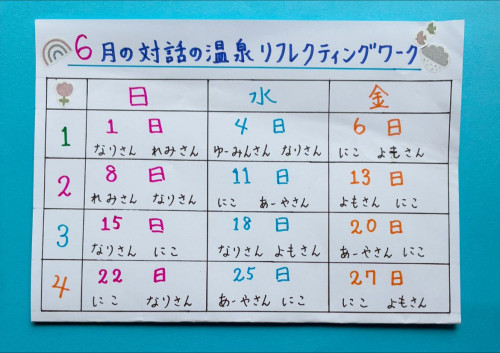 6月の対話の温泉リフレクティングワーク
日 水 金
1 1日 4日 6日
なりさん れみさん ゆーみんさん なりさん にこ よもさん
2 8日 11日 13日
れみさん なりさん にこ あーやさん よもさん にこ
3 15日 18日 20日
なりさん にこ なりさん よもさん あーやさん にこ
4 22日 25日 27日
にこ なりさん あーやさん にこ にこ よもさん